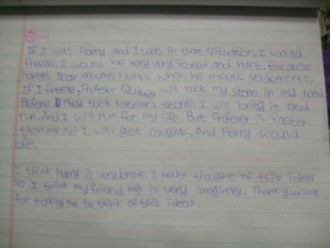 B-1
If I was Harry and I was in that situation, I would
freeze. I would be very very scared and hurt. Because
harry's scar always hurts when he meets voldemort.
If I freeze, Profeser will took my stone in my hand.
Before they took sorcerer's stone, I will bring it and
run. And I will run for my life. But Profeser is faster
than me. so I will get caught. And Harry would
die.
I think Harry is very brave. I never thought of this idea
so I think my friend me is very imaginary. Thank you
for making me to think of this idea.